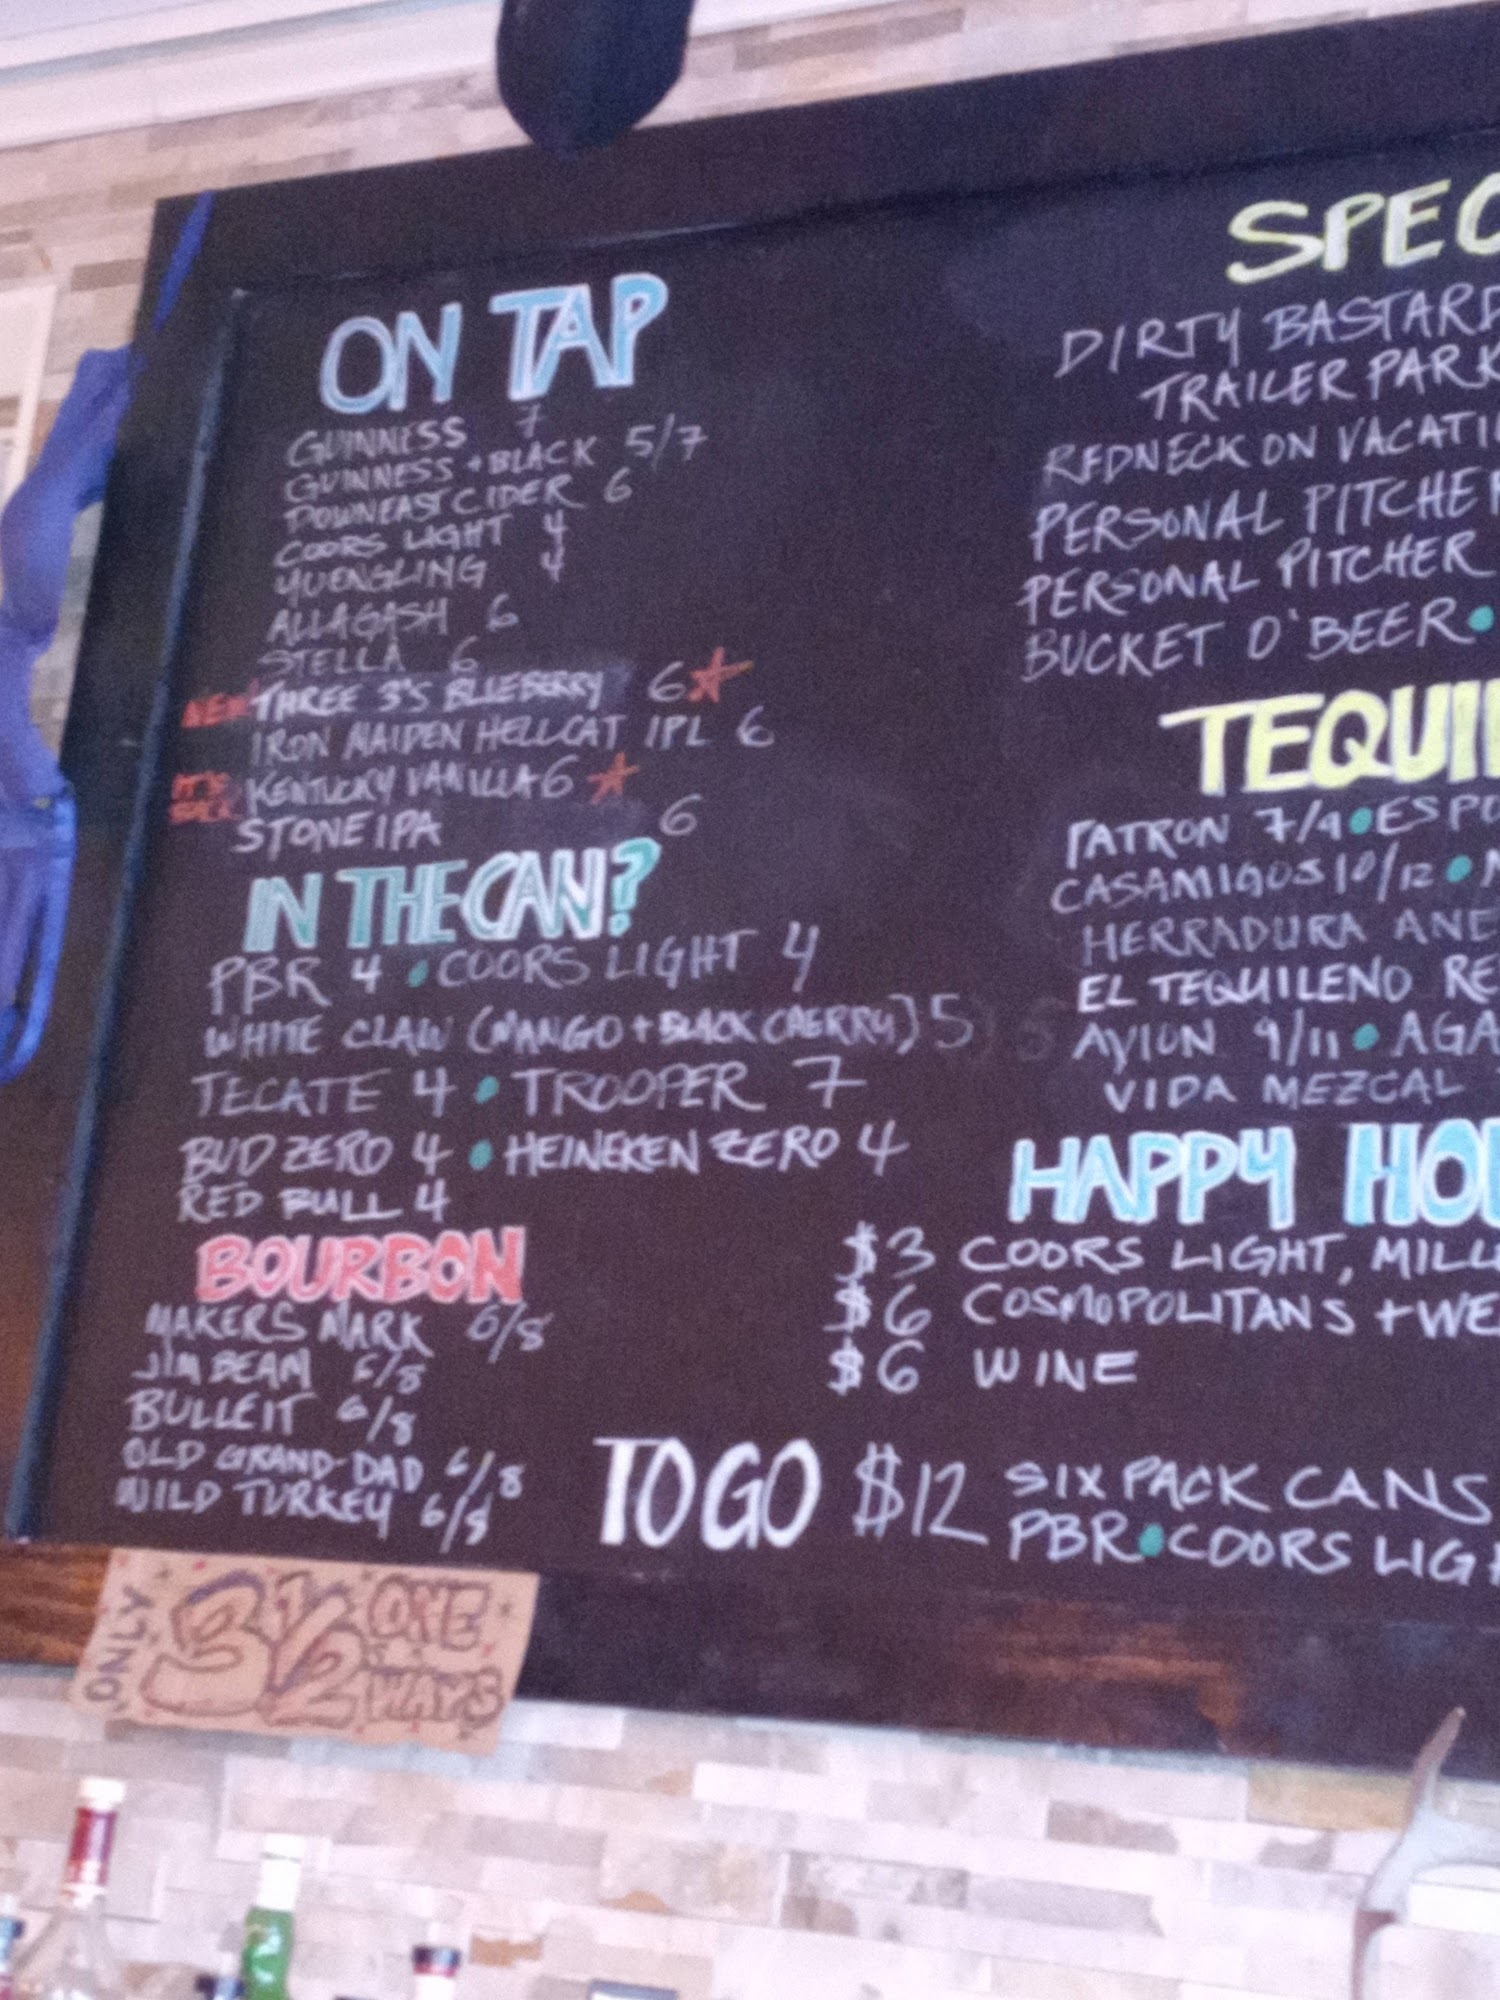 ON TAP
GUINNESS 7
GUINNESS + BLACK 5/7
DOWNEAST CIDER 6
COORS LIGHT 4
YUENGLING 4
ALLAGASH 6
STELLA 6
NEW THREE 3'S BLUEBERRY 6
IRON MAIDEN HELLCAT IPL 6
IT'S BACK KENTUCKY VANILLA 6
STONE IPA 6
IN THE CAN?
PBR 4 • COORS LIGHT 4
WHITE CLAW (MANGO + BLACK CHERRY) 5
TECATE 4 • TROOPER 7
BUD ZERO 4 • HEINEKEN ZERO 4
RED BULL 4
BOURBON
MAKERS MARK 6/8
JIM BEAM 6/8
BULLEIT 6/8
OLD GRAND-DAD 6/8
WILD TURKEY 6/8
SPEC
DIRTY BASTARD
TRAILER PARK
REDNECK ON VACATI
PERSONAL PITCHER
PERSONAL PITCHER
BUCKET O'BEER •
TEQUI
PATRON 7/9 • ESPO
CASAMIGOS 10/12 •
HERRADURA ANE
EL TEQUILENO RE
AVION 9/11 • AGA
VIDA MEZCAL
HAPPY HO
$3 COORS LIGHT, MILL
$6 COSMOPOLITANS + WE
$6 WINE
TO GO $12 SIX PACK CANS
PBR • COORS LIGH
ONLY 3 1/2 ONE WAYS